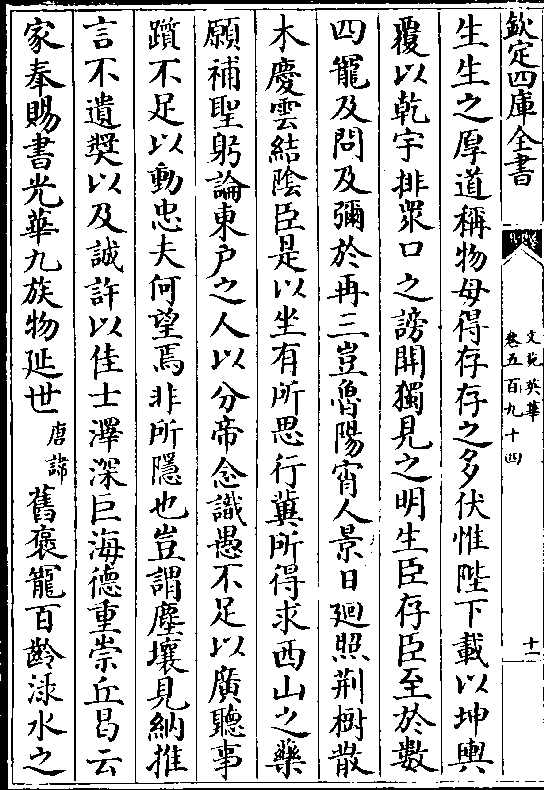 欽定四庫全書
文苑英華
卷五百九十四
十一
生生之厚道稱物母得存存之多伏惟陛下載以坤輿
覆以乾宇排眾口之謗開獨見之明生臣存臣至於數
四寵及問及彌於再三豈魯陽宵人景日廻照荆樹散
木慶雲結陰臣是以坐有所思行冀所得求西山之藥
願補聖躬論東户之人以分帝念識愚不足以廣聽事
躓不足以動忠夫何望焉非所隱也豈謂塵壤見納推
言不遺奬以及誠許以佳士澤深巨海德重崇丘曷云
家奉賜書光華九族物延世唐諱舊褒寵百齡淥水之